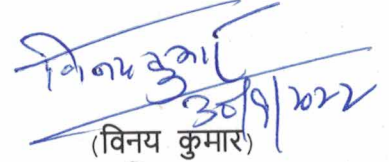 विनय कुमार
30/9/2022
(विनय कुमार)